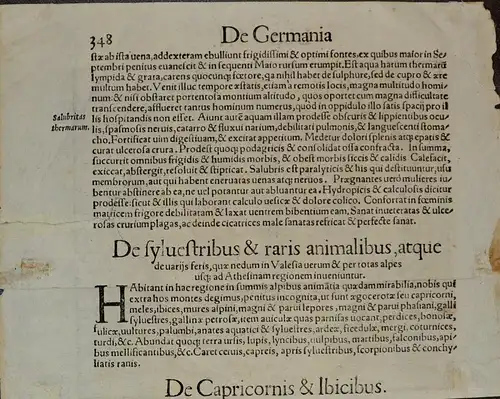 348 De Germania
stæ ab ista uena, ad dexteram ebulliunt frigidissimi & optimi fontes, ex quibus maior in Se-
ptembri penitus euanescit & in sequenti Maio rursum erumpit. Est aqua harum thermarū
lympida & grata, carens quocunq; fœtore, qa nihil habet de sulphure, sed de cupro & ære
multum habet. Venit illuc tempore æstatis, etiam à remotis locis, magna multitudo homi-
num. & nisi obstaret portentosa montium altitudo, quos oportet cum magna difficultate
transcendere, afflueret tantus hominum numerus, quòd in oppidulo illo satis spacij pro il
Salubritas
thermarum.
lis hospitandis non esset. Aiunt autē aquam illam prodesse obscuris & lippientibus ocu-
lis, spasmosis neruis, catarro & fluxui narium, debilitati pulmonis, & languescenti stoma-
cho. Fortificat uim digestiuam, & excitat appetitum. Medetur dolori splenis atq; epatis &
curat ulcerosa crura. Prodest quoq; podagricis & consolidat ossa confracta. In summa,
succurrit omnibus frigidis & humidis morbis, & obest morbis siccis & calidis. Calefacit,
exiccat, abstergit, resoluit & stipticat. Salubris est paralyticis & his qui destituuntur, usu
membrorum, aut qui habent eneruatas uenas atq; neruos. Prægnantes uerò mulieres iu-
bentur abstinere ab ea, ne uel potantur aut abluantur ea. Hydropicis & calculosis dicitur
prodesse: sicut & illis qui laborant calculo uesicæ & dolore colico. Confortat in fœminis
matricem frigore debilitatam & laxat uentrem bibentium eam. Sanat inueteratas & ulce-
rosas crurium plagas, ac deinde cicatrices male sanatas refricat & perfecte sanat.
De syluestribus & raris animalibus, atque
de uarijs feris, quæ nedum in Valesia uerum & per totas alpes
usq; ad Athesinam regionem inueniuntur.
HAbitant in hac regione in summis alpibus animātia quædam mirabilia, nobis qui
extra hos montes degimus, penitus incognita, ut sunt ægocerotæ seu capricorni,
meles, ibices, mures alpini, magni & parui lepores, magni & parui phasiani, galli
syluestres, gallinæ petrosæ, item auiculæ quas parnisas uocant, perdices, bonosæ,
fulicæ, uultures, palumbi, anates aquatici & syluestres, ardeæ, ficedulæ, mergi, coturnices,
turdi, &c. Abundat quoq; terra ursis, lupis, lyncibus, uulpibus, martibus, falconibus, api-
bus mellificantibus, &c. Caret ceruis, capreis, apris syluestribus, scorpionibus & conchy-
liatis ranis.
De Capricornis & Ibicibus.